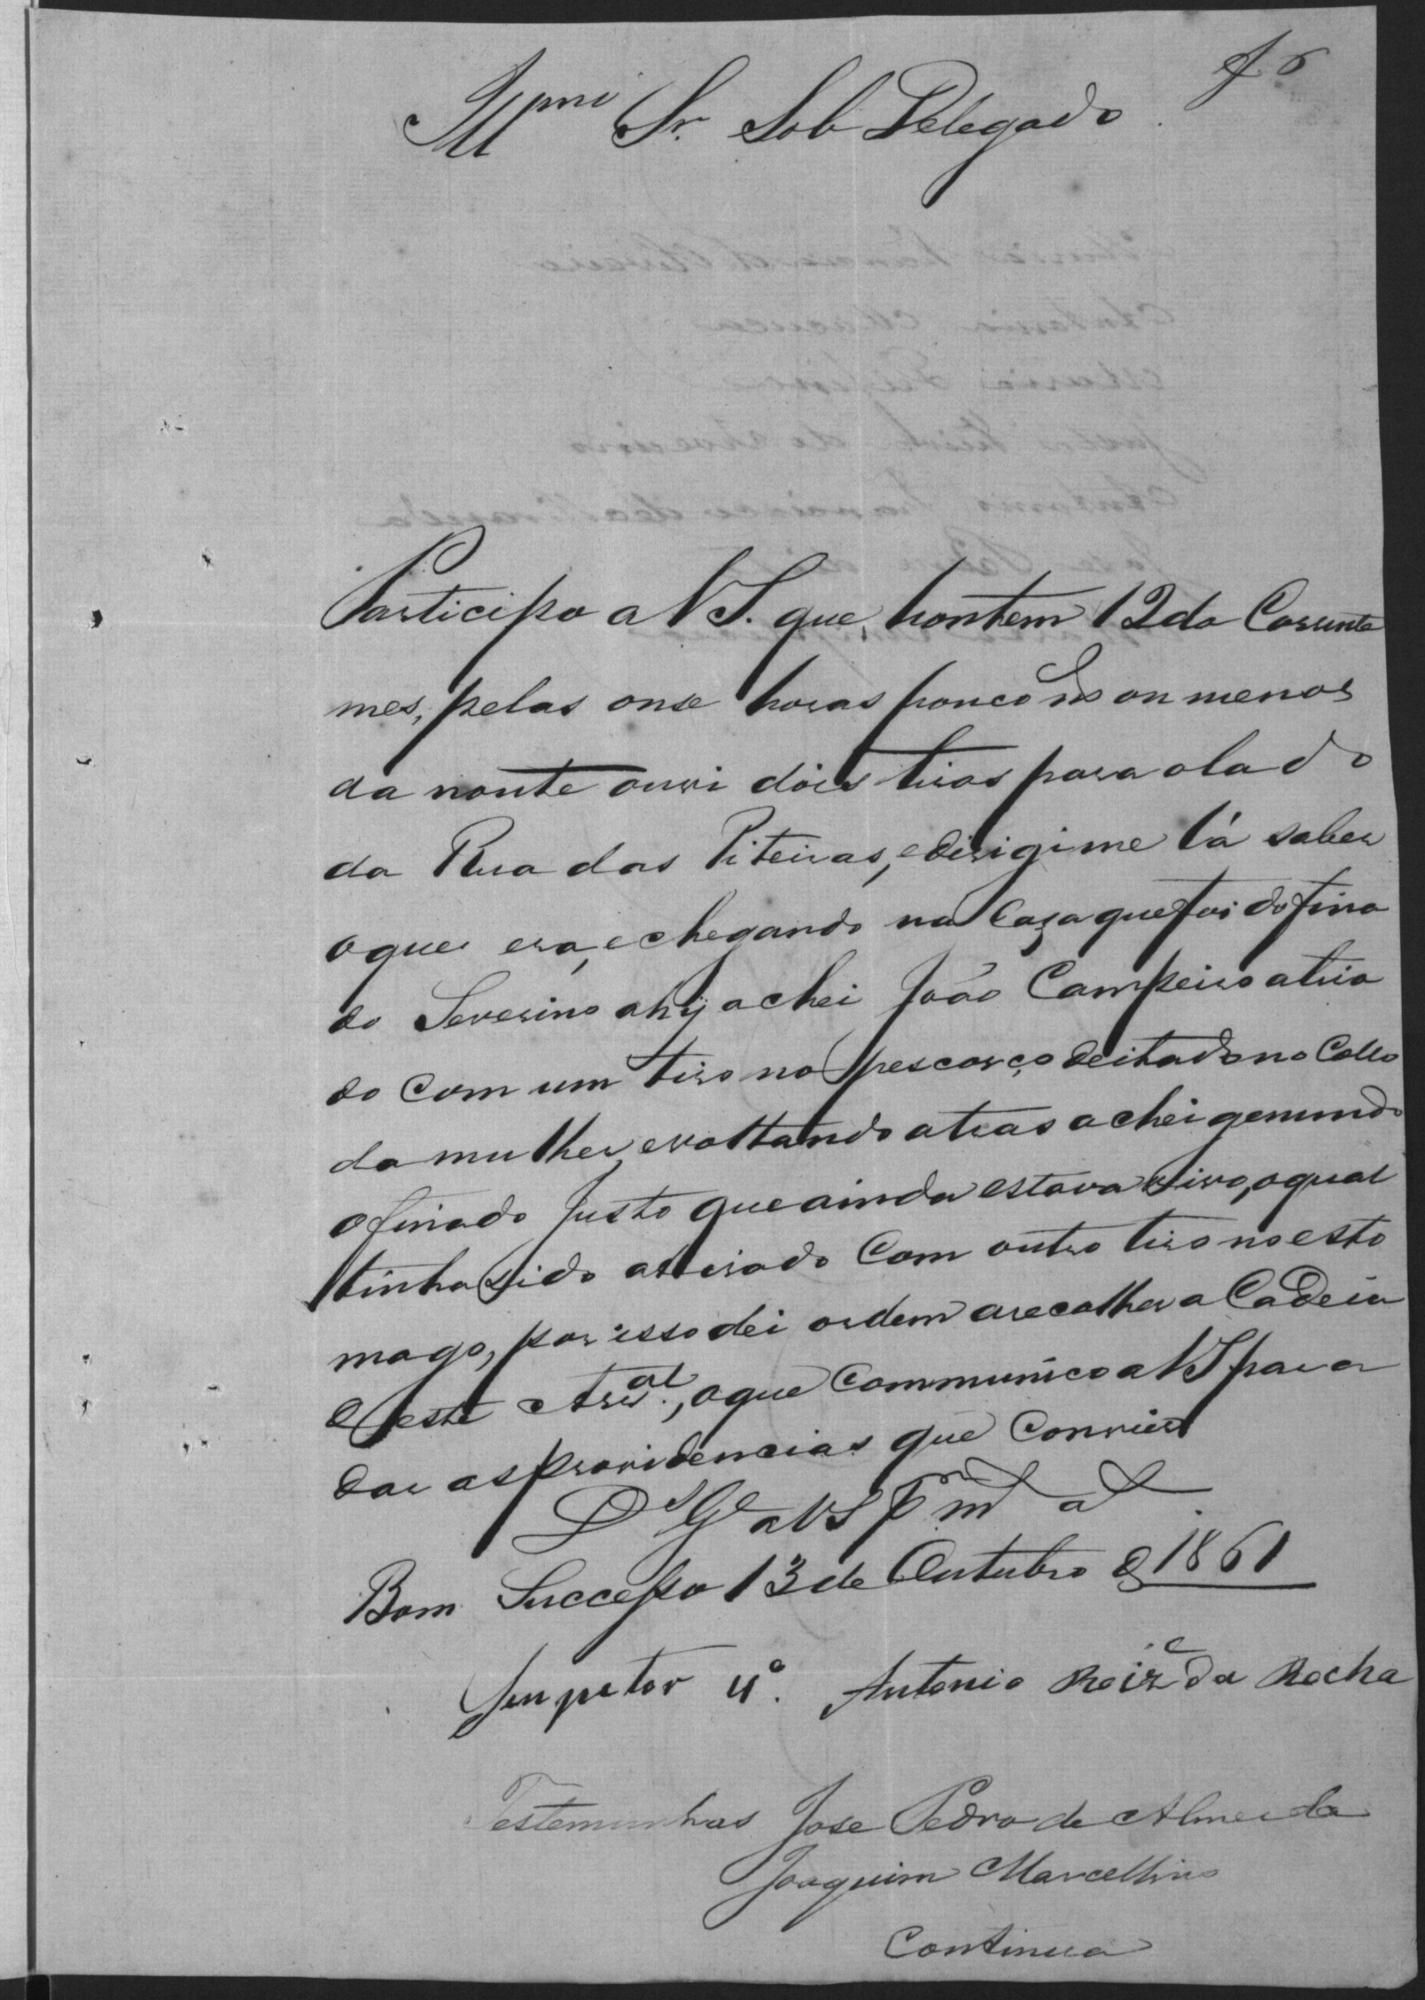 f 6
Illmo Sr. Sob Delegado
Participo a VS. que, hontem 12 do Corrente
mes, pelas onse horas pouco ms ou menos
da noute ouvi dois tiros para o lado
da Rua das Piteiras, e dirigime lá saber
o que era, e chegando na Caza que foi do fina
do Severino ahy achei João Campeiro atira
do com um tiro no pescorço deitado no Collo
da mulher, e voltando atras achei gemundo
o finado Justo que ainda estava vivo, o qual
tinha sido atirado Com outro tiro no esto
mago, por isso dei ordem a recolher a Cadeia
este, o que Communico a VS para
dar as providencias que Convier
Ds Ge a VS
Bom Successo 13 de Outubro d 1861
4º. Antonio Roiz da Rocha
Testemunhas Jose Pedro de Almeida
Joaquim Marcellino
Continua